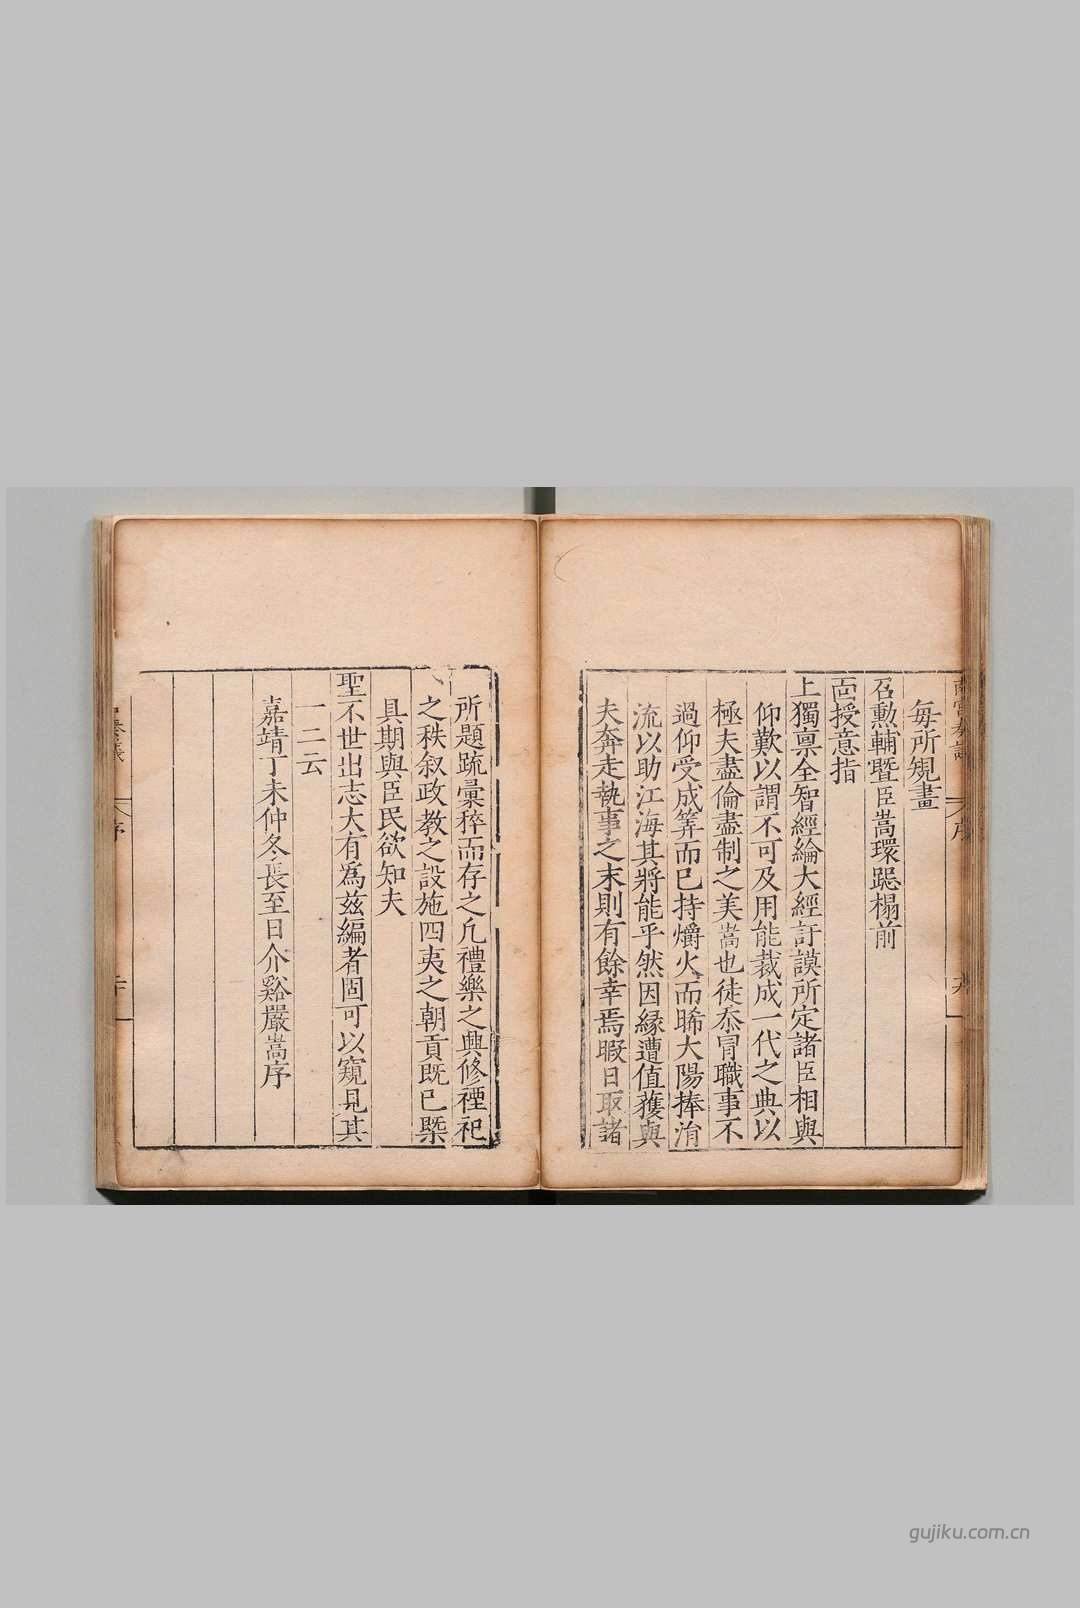 每所䂓畫
召勳輔暨臣嵩環跽榻前
面授意指
上獨禀全智經綸大經訏謨所定諸臣相與
仰歎以謂不可及用能裁成一代之典以
極夫盡倫盡制之美嵩也徒忝冒職事不
過仰受成筭而已持爝火而晞大陽捧涓
流以助江海其將能乎然因緣遭值獲與
夫奔走執事之末則有餘幸焉暇日取諸
所題疏彙稡而存之凢禮樂之興修禋祀
之秩叙政教之設施四夷之朝貢既已槩
具期與臣民欲知夫
聖不世出志大有爲兹編者固可以窺見其
一二云
嘉靖丁未仲冬長至日介谿嚴嵩序
序
gujiku.com.cn